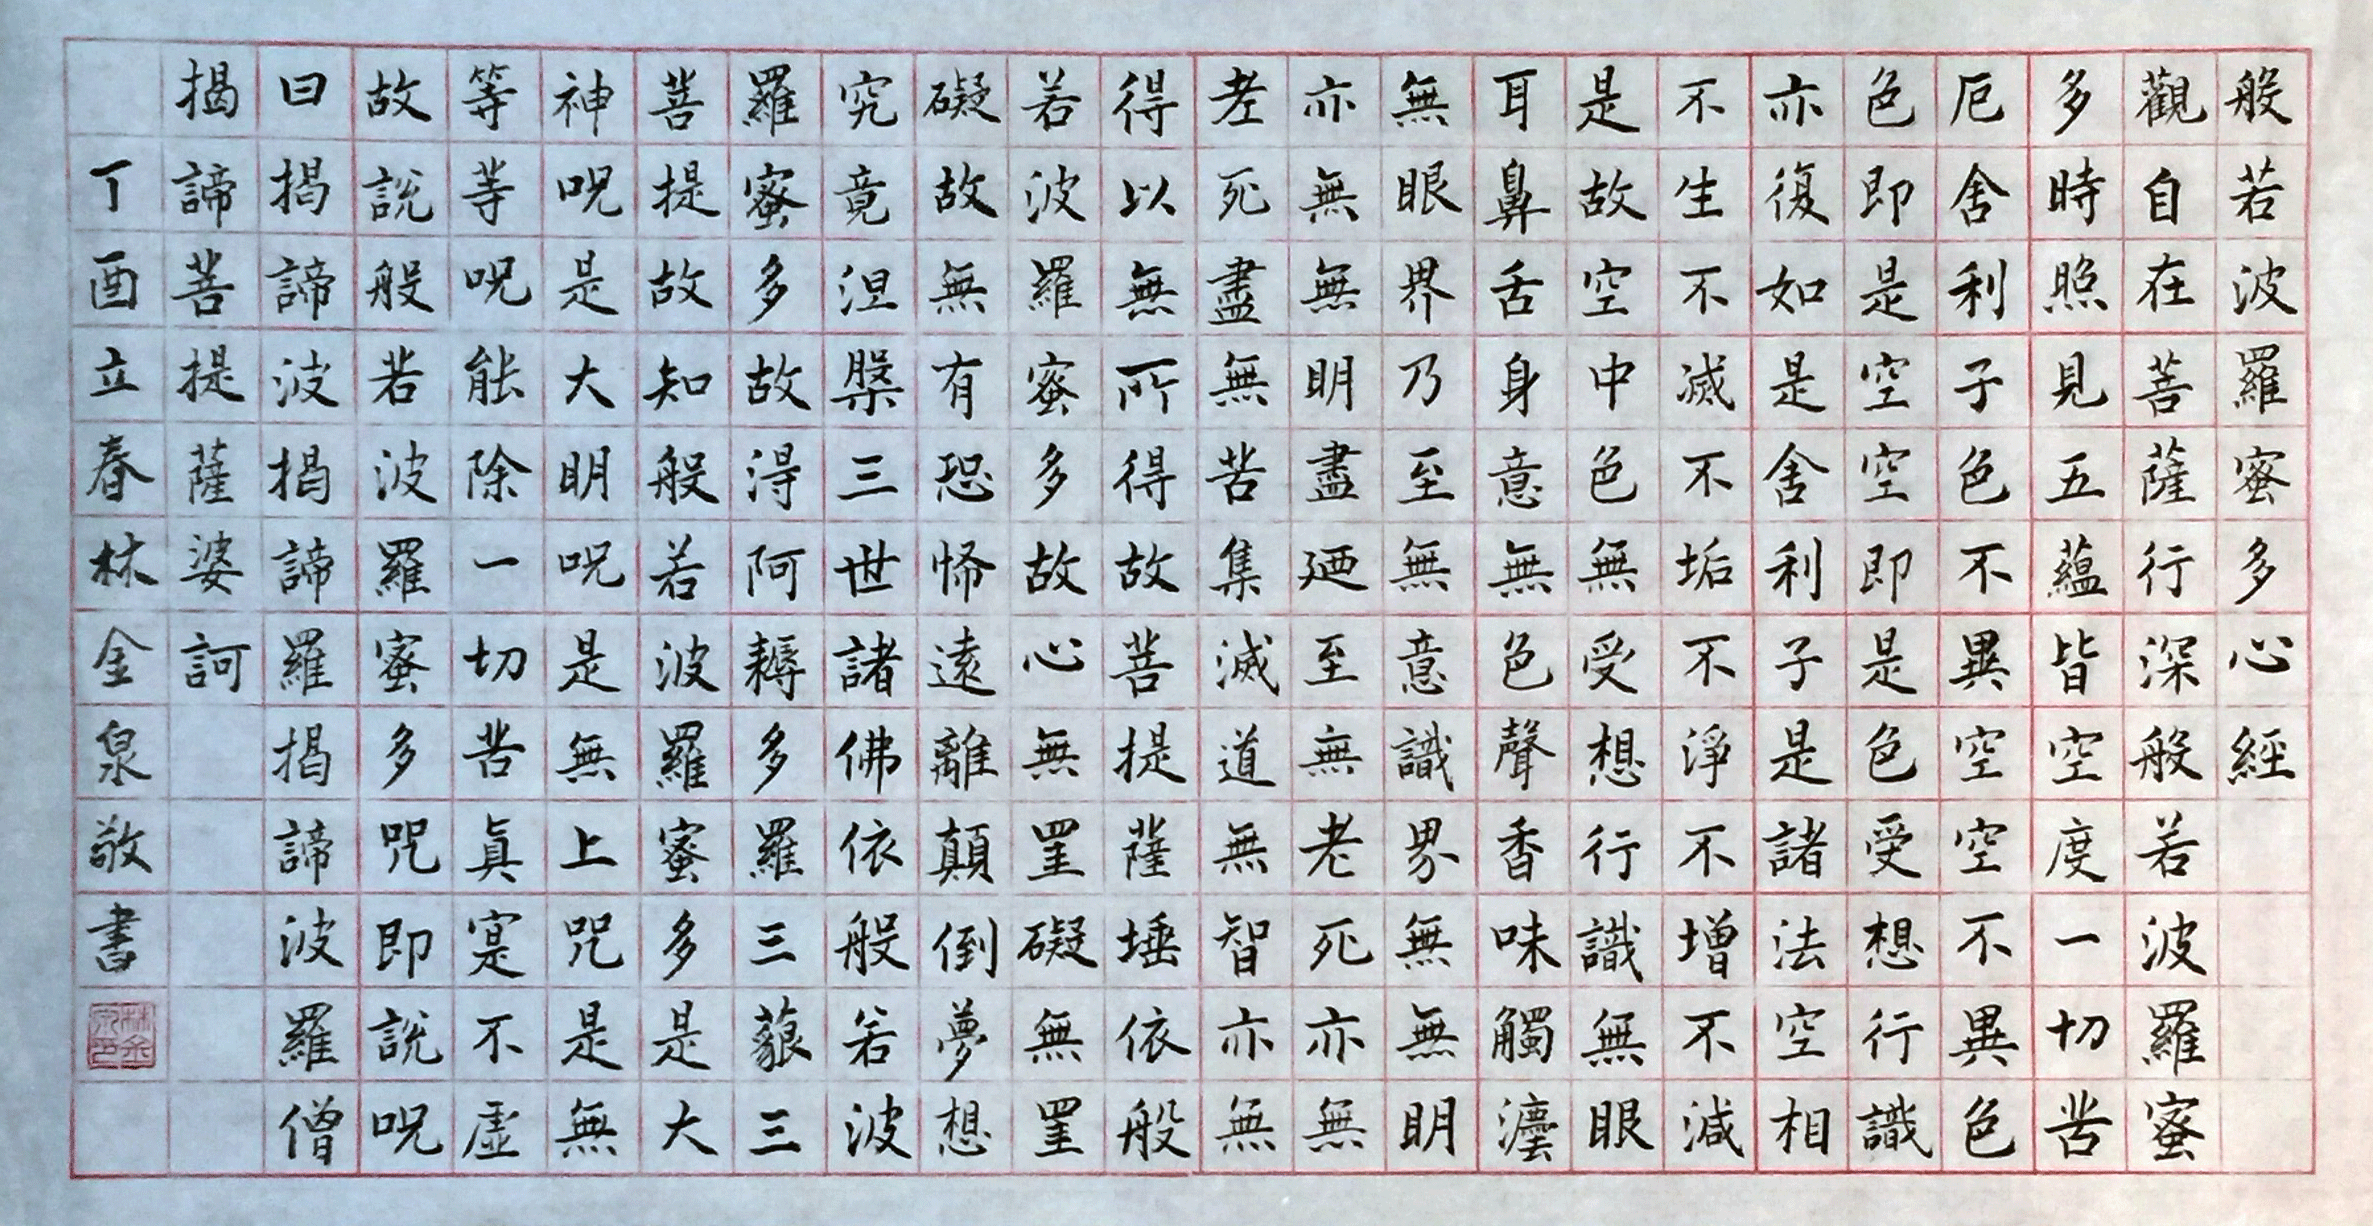 般若波羅蜜多心經
觀自在菩薩行深般若波羅蜜
多時照見五蘊皆空度一切苦
厄舍利子色不異空空不異色
色即是空空即是色受想行識
亦復如是舍利子是諸法空相
不生不滅不垢不淨不增不減
是故空中色無受想行識無眼
耳鼻舌身意無色聲香味觸法
無眼界乃至無意識界無無明
亦無無明盡廼至無老死亦無
老死盡無苦集滅道無智亦無
得以無所得故菩提薩埵依般
若波羅蜜多故心無罣礙無罣
礙故無有恐怖遠離顛倒夢想
究竟涅槃三世諸佛依般若波
羅蜜多故得阿耨多羅三藐三
菩提故知般若波羅蜜多是大
神呪是大明呪是無上咒是無
等等呪能除一切苦真寔不虛
故說般若波羅蜜多咒即說呪
曰揭諦揭諦波羅揭諦波羅僧
揭諦菩提薩婆訶
丁酉立春林金泉敬書